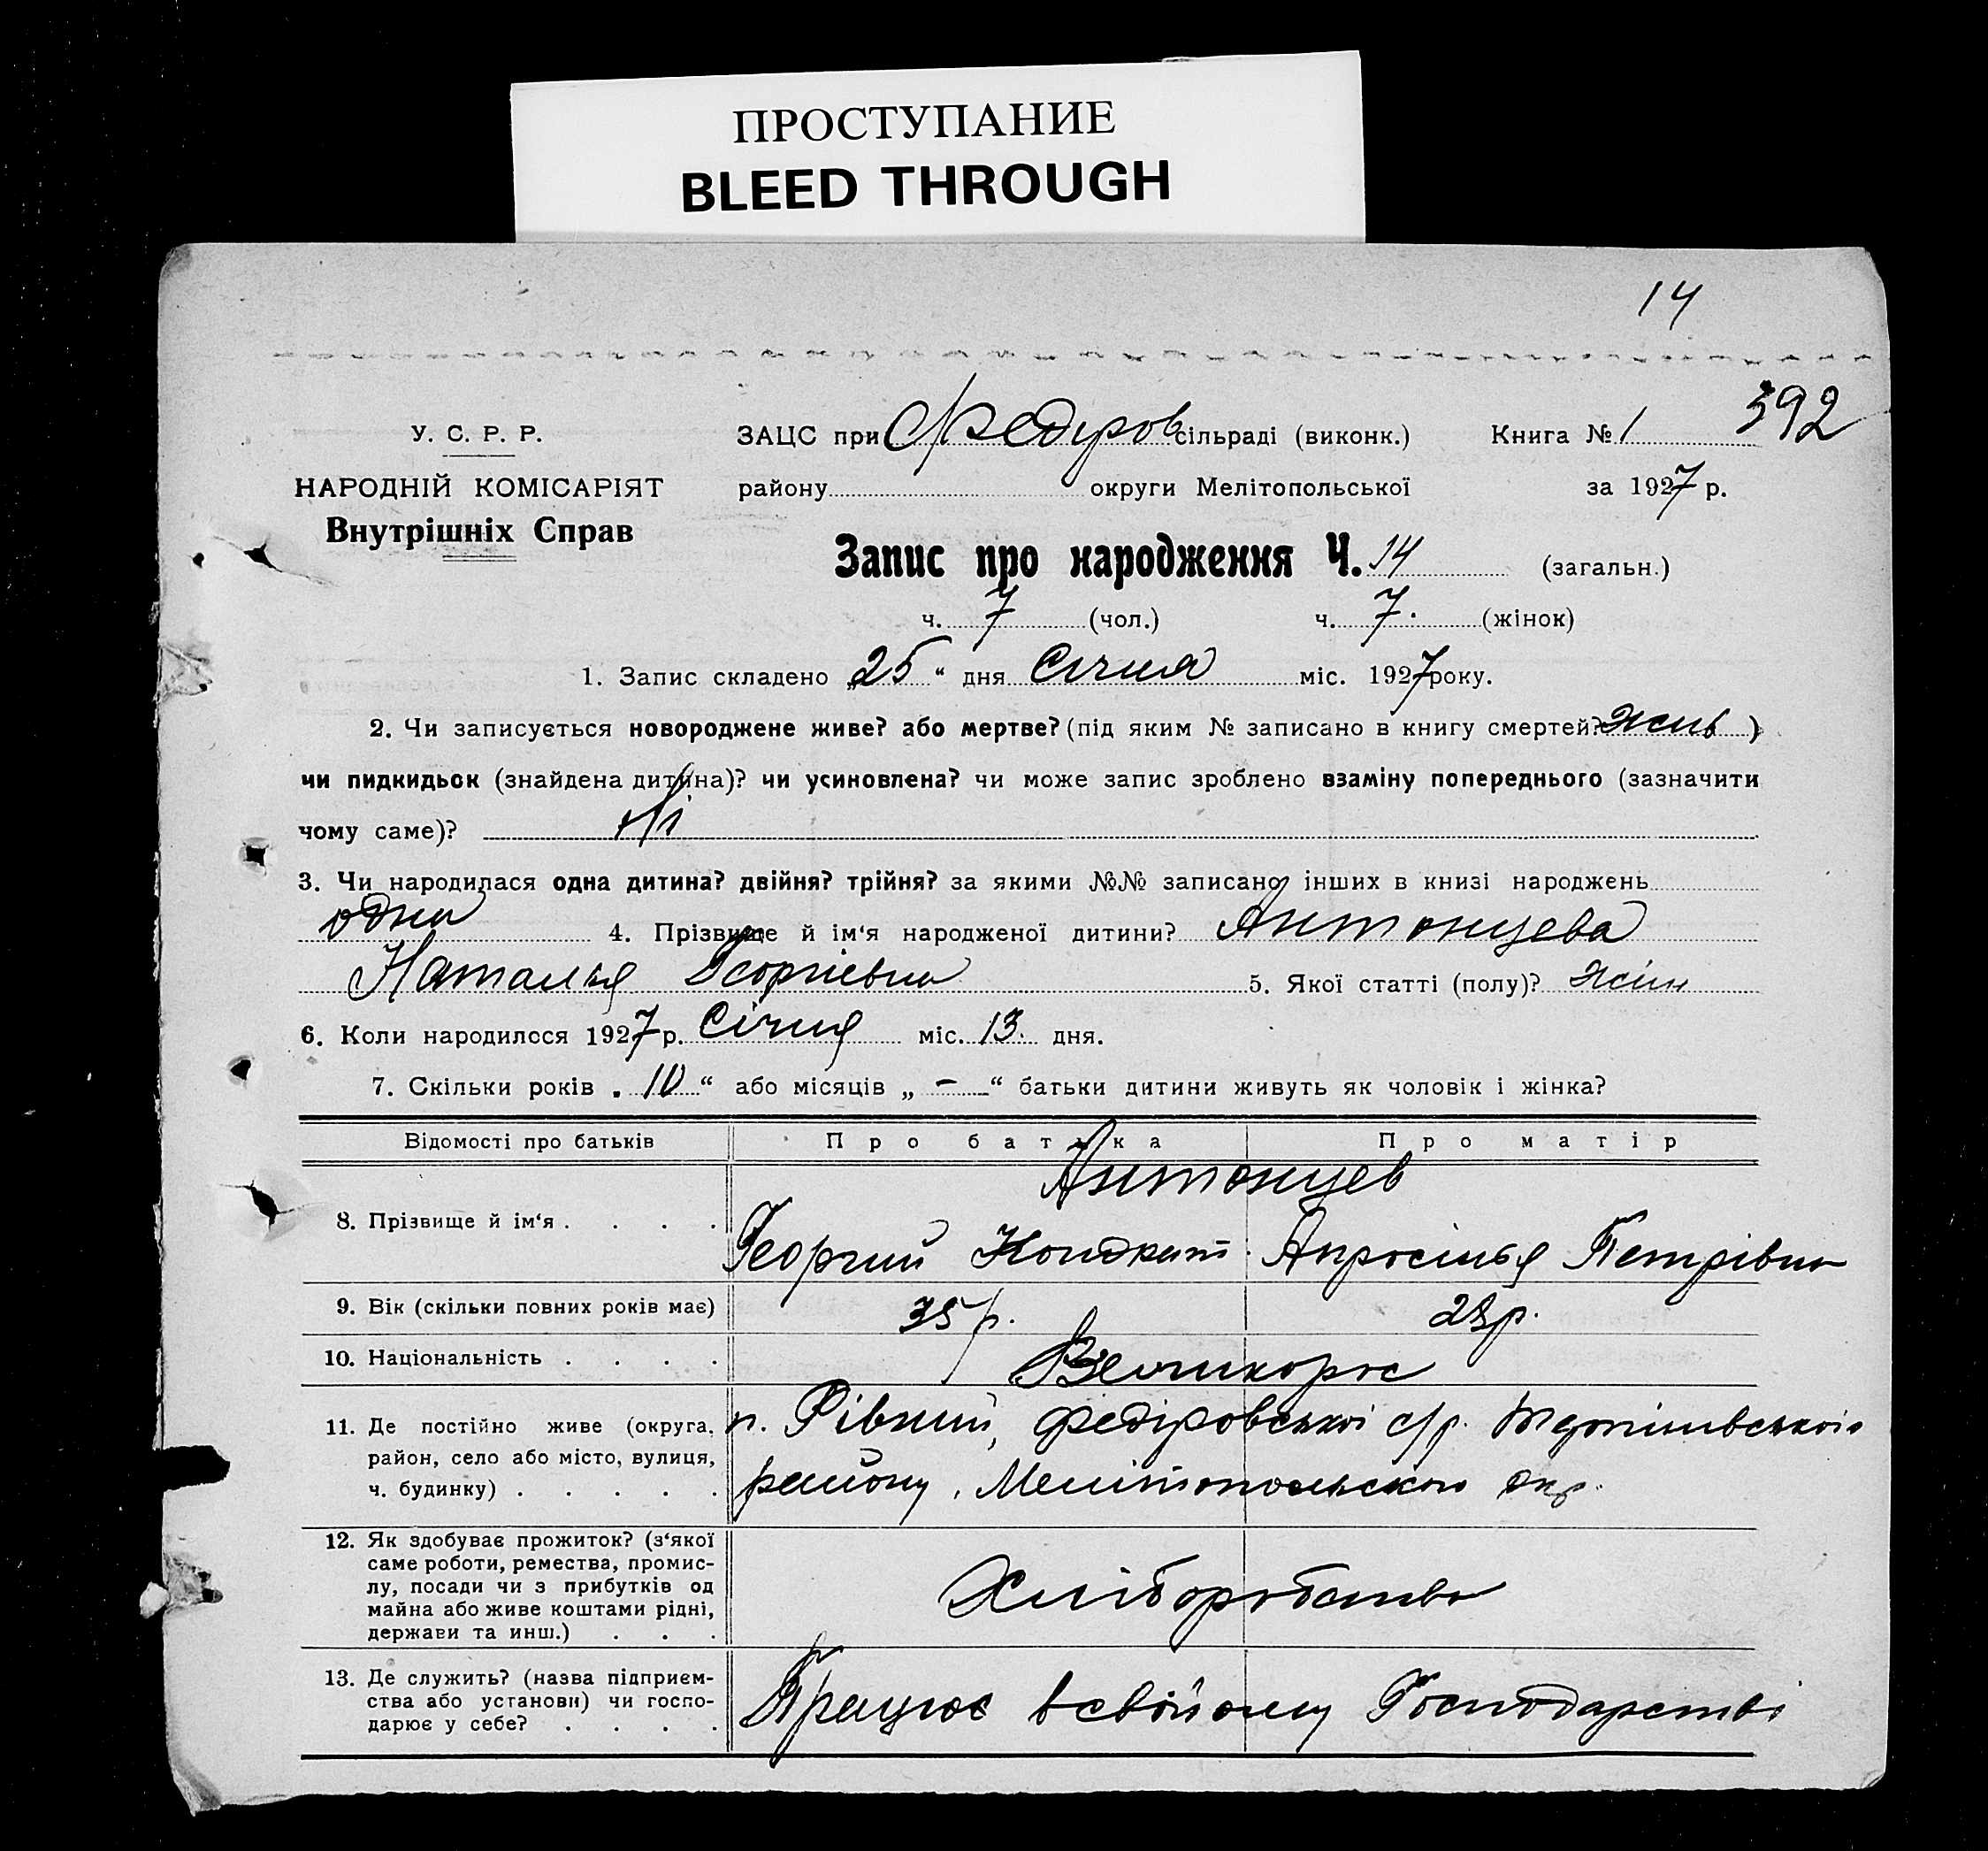 ПРОСТУПАНИЕ
BLEED THROUGH
14
392
У. С. Р. Р.
НАРОДНІЙ КОМІСАРІЯТ
Внутрішніх Справ
ЗАЦС при Федиров сільраді (виконк.) Книга № 1
району округи Мелітопольської за 1927 р.
Запис про народження Ч. 14 (загальн.)
ч. 7 (чол.) ч. 7. (жінок)
1. Запис складено „25“ дня Січня міс. 1927 року.
2. Чи записується новороджене живе? або мертве? (під яким № записано в книгу смертей? жив )
чи пидкидьок (знайдена дитина)? чи усиновлена? чи може запис зроблено взаміну попереднього (зазначити
чому саме)? Ні
3. Чи народилася одна дитина? двійня? трійня? за якими №№ записано інших в книзі народжень
одна 4. Прізвище й ім‘я народженої дитини? Антонцева
Наталья Георгіевна 5. Якої статті (полу)? жін
6. Коли народилося 1927 р. Січня міс. 13. дня.
7. Скільки років „ 10 “ або місяців „ - “ батьки дитини живуть як чоловік і жінка?
Відомості про батьків Про батька Про матір
Антонцев
8. Прізвище й ім‘я . . . . Георгий Кондрат. Апросінья Петрівна
9. Вік (скільки повних років має) 35 р. 28 р.
10. Національність . . . . Великорос
11. Де постійно живе (округа, п. Рівний, Федіровської с/р.
район, село або місто, вулиця,
ч. будинку) . . . . . району, Мелітопольскою окр.
12. Як здобуває прожиток? (з‘якої
саме роботи, ремества, промис-
лу, посади чи з прибутків од
майна або живе коштами рідні,
держави та инш.) . . . Хліборобство
13. Де служить? (назва підприєм-
ства або установи) чи госпо-
дарює у себе? . . . . Працює в свойому Господарстві